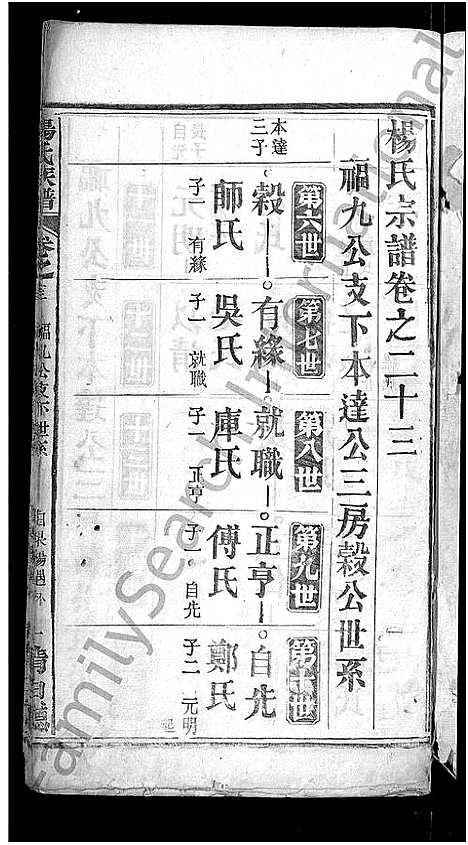 楊氏宗譜卷之二十三
福九公支下本達公三房穀公世系
第六世
第七世
第八世
第九世
第十世
本達三子
穀
有緣
就職
正亨
自先
師氏
吳氏
庫氏
傅氏
鄭氏
子一 有緣
子一 就職
子一 正亨
子一 自先
子二 元明
起
楊氏族譜
福九公支下世系
FamilySearch International